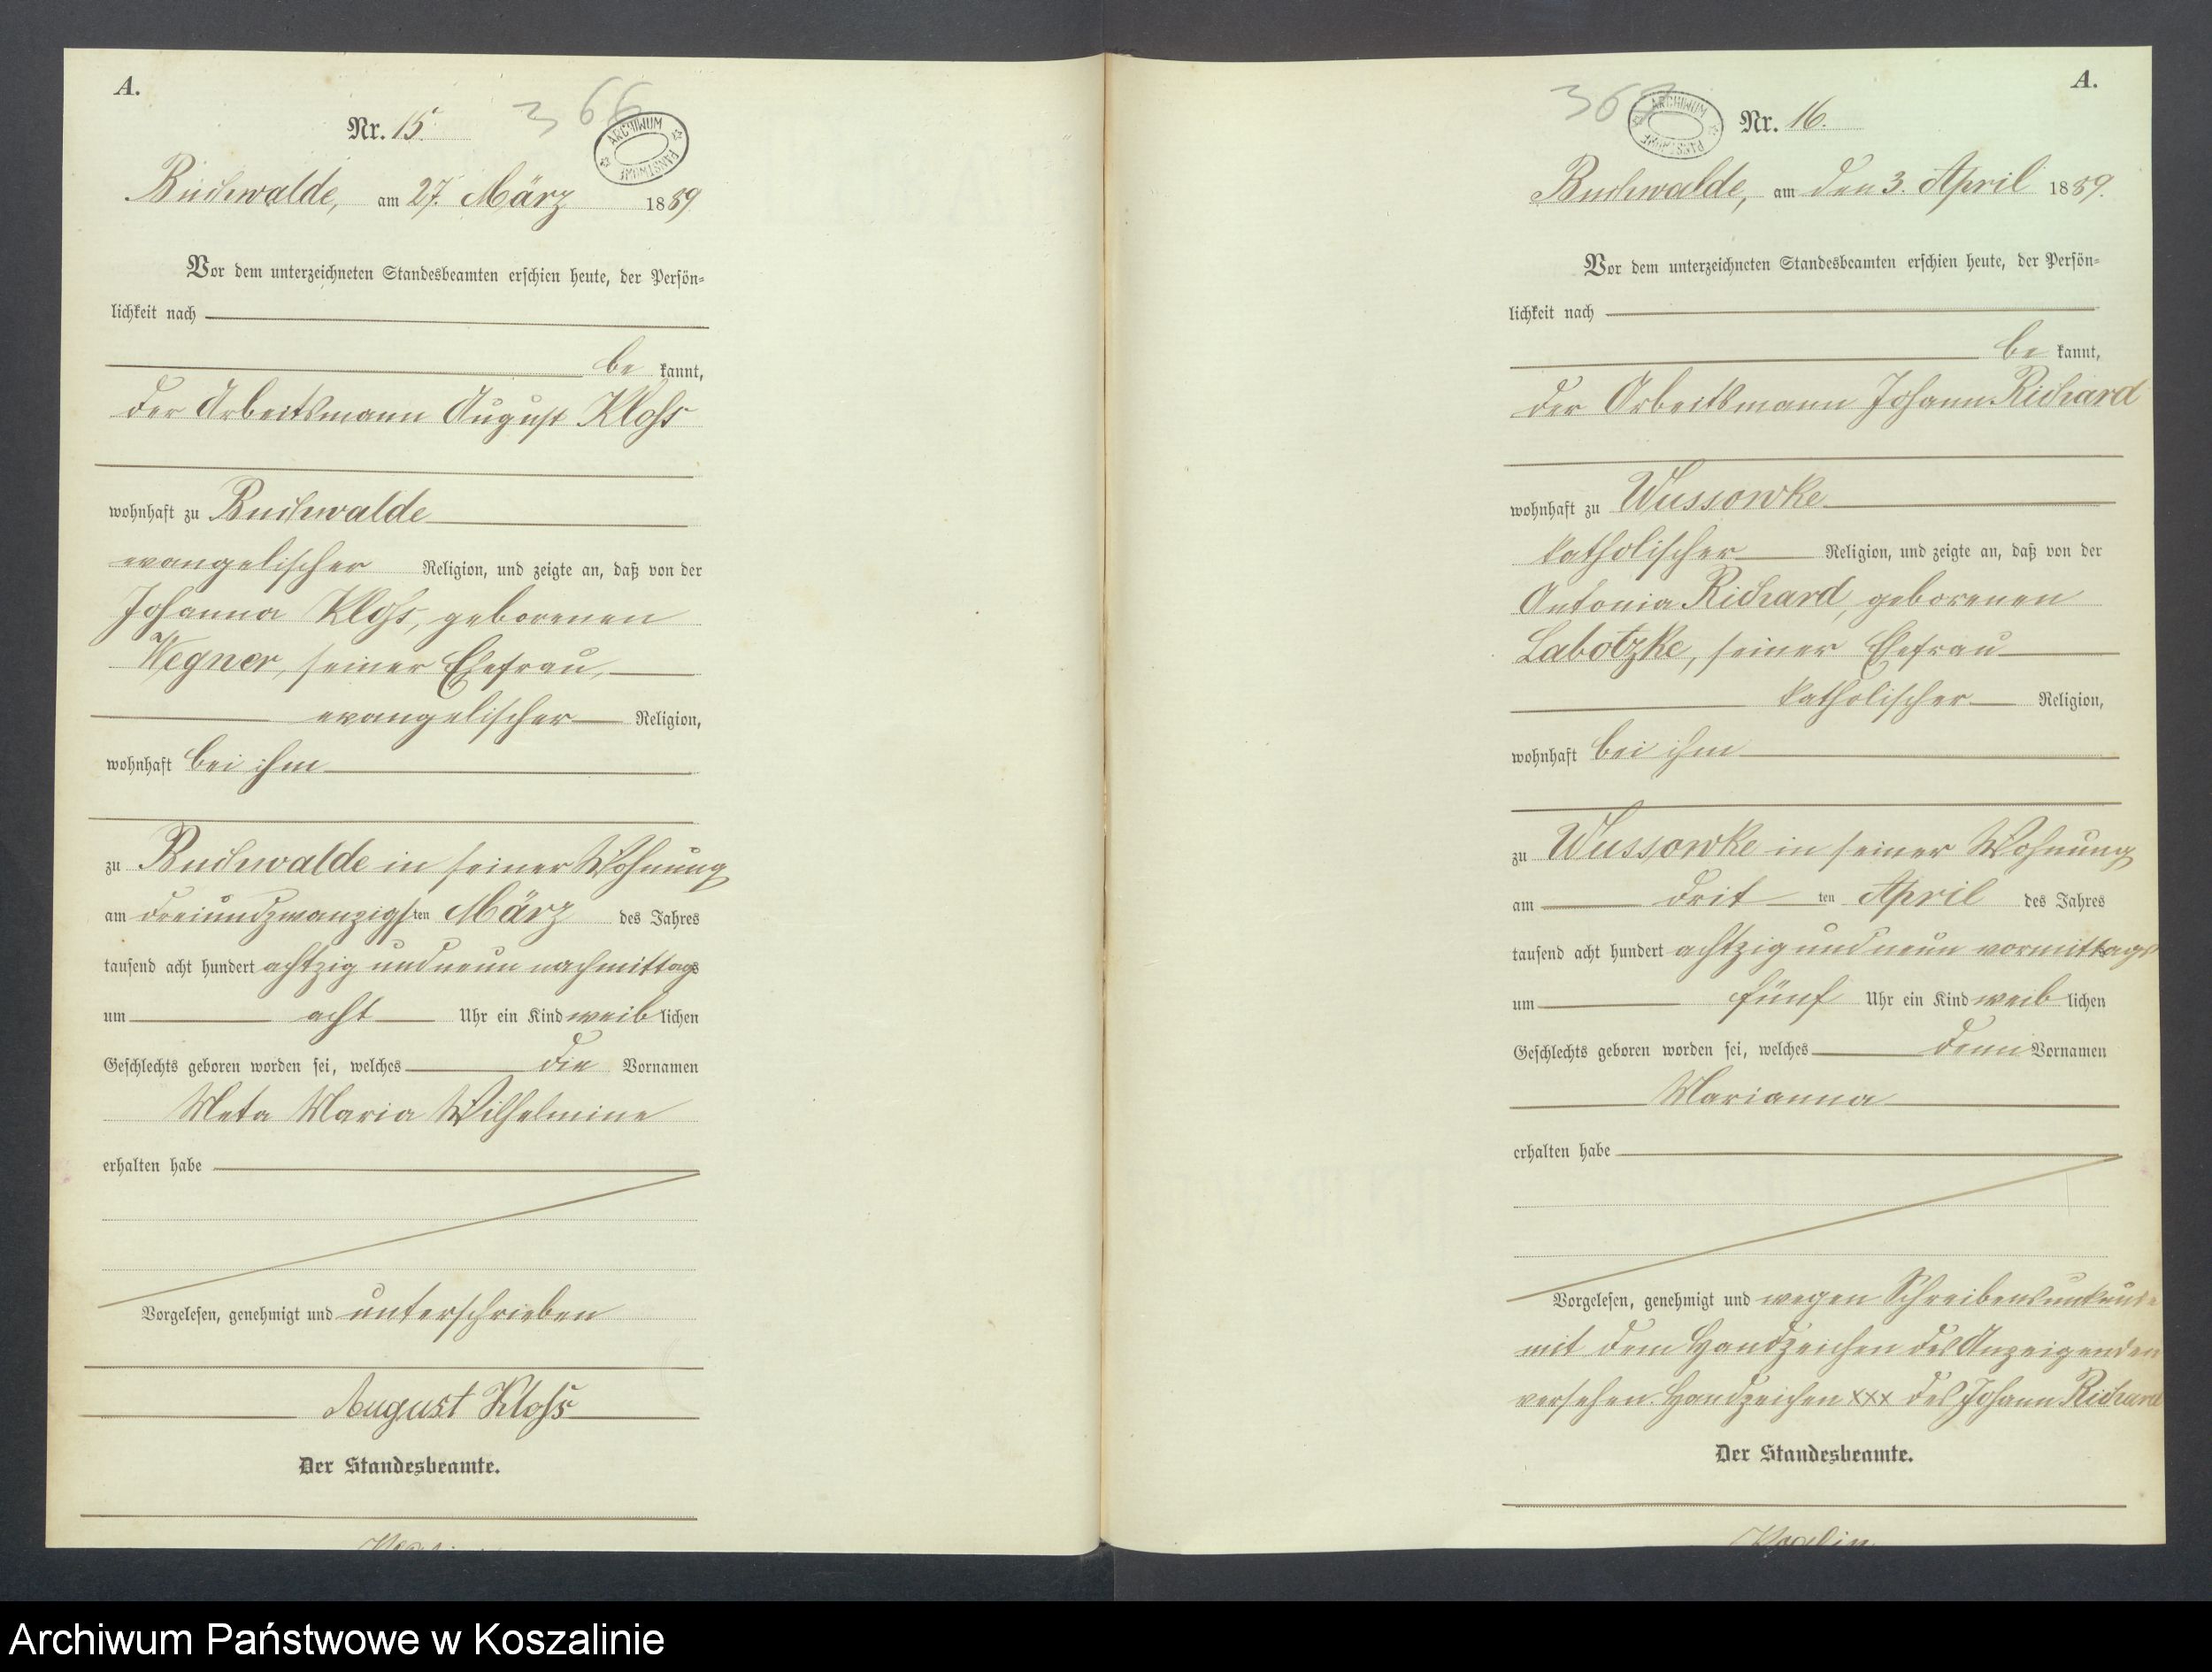 A.
366
Nr. 15.
ARCHIWUM PAŃSTWOWE
Buchwalde, am 27. März 1889.
Vor dem unterzeichneten Standesbeamten erschien heute, der Persön-
lichkeit nach
be kannt,
der Arbeitsmann August Kloss
wohnhaft zu Buchwalde
evangelischer Religion, und zeigte an, daß von der
Johanna Kloss, geborenen
Wegner, seiner Ehefrau,
evangelischer Religion,
wohnhaft bei ihm
zu Buchwalde in seiner Wohnung
am dreiundzwanzigsten März des Jahres
tausend acht hundert achtzig und neun nachmittags
um acht Uhr ein Kind weiblichen
Geschlechts geboren worden sei, welches die Vornamen
Meta Maria Wilhelmine
erhalten habe
Vorgelesen, genehmigt und unterschrieben
August Kloss
Der Standesbeamte.
A.
ARCHIWUM PAŃSTWOWE
Nr. 16.
Buchwalde, am den 3. April 1889.
Vor dem unterzeichneten Standesbeamten erschien heute, der Persön-
lichkeit nach
be kannt,
der Arbeitsmann Johann Richard
wohnhaft zu Wussowke
katholischer Religion, und zeigte an, daß von der
Antonia Richard, geborenen
Labotzke, seiner Ehefrau
katholischer Religion,
wohnhaft bei ihm
zu Wussowke in seiner Wohnung
am dritten April des Jahres
tausend acht hundert achtzig und neun vormittags
um fünf Uhr ein Kind weiblichen
Geschlechts geboren worden sei, welches Vornamen
Marianna
erhalten habe
Vorgelesen, genehmigt und wegen Schreibensunkunde
mit dem Handzeichen des Anzeigenden
versehen. Handzeichen xxx des Johann Richard
Der Standesbeamte.
Archiwum Państwowe w Koszalinie